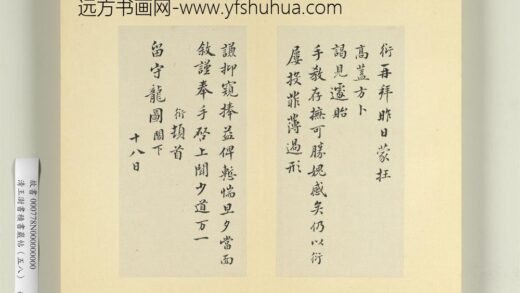 远方书画网-www.yfshuhua.com
衍再拜昨日蒙枉
高蓋方卜
謁見遽貽
手教存撫可勝媿感矣仍以衍
屢投菲薄過形
謙抑窺捧益俾慙惴旦夕當面
敘謹奉手啓上聞少道万一
衍頓首
留守龍圖閣下
十八日
故書 000778N000000000
清王澍書積書巖帖(五八)